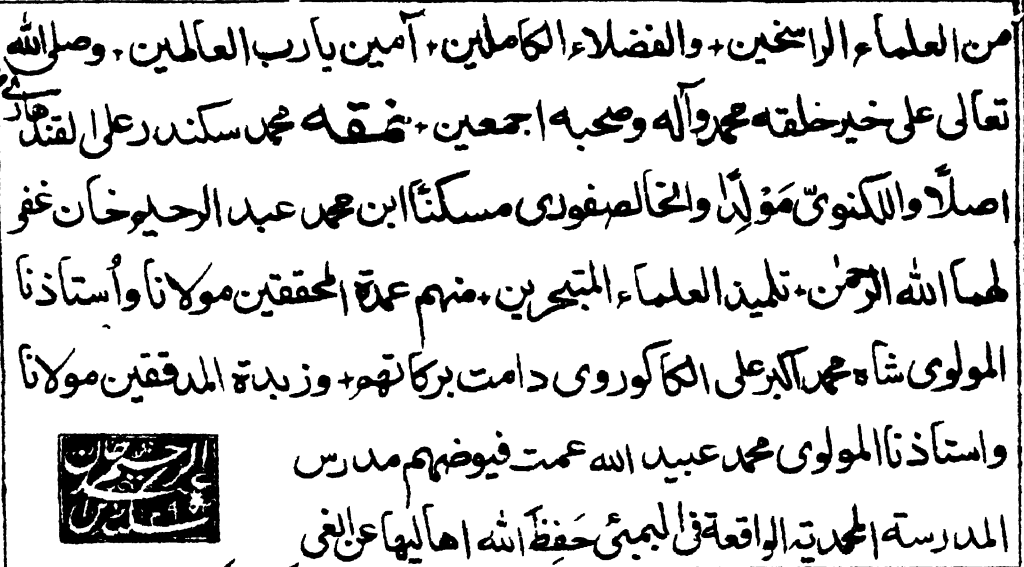 من العلماء الراسخين٠ والفضلاء الكاملين٠ آمين يارب العالمين٠ وصلى الله
تعالى على خير خلقه محمد وآله وصحبه اجمعين٠ نمقه محمد سكندر على القندهاري
اصلًا واللكنويّ مَوْلِدًا والخالصفورى مسكنًا ابن محمد عبد الرحيم خان غفر
لهما الله الرحمٰن٠ تلميذ العلماء المتبحرين٠ منهم عمدة المحققين مولانا وأستاذنا
المولوى شاه محمد اكبر على الكاكوروى دامت بركاتهم٠ وزبدة المدققين مولانا
واستاذنا المولوى محمد عبيد الله عمت فيوضهم مدرس
المدرسة المحمدية الواقعة فى البمبئى حَفِظَ الله اهاليها عن الغى